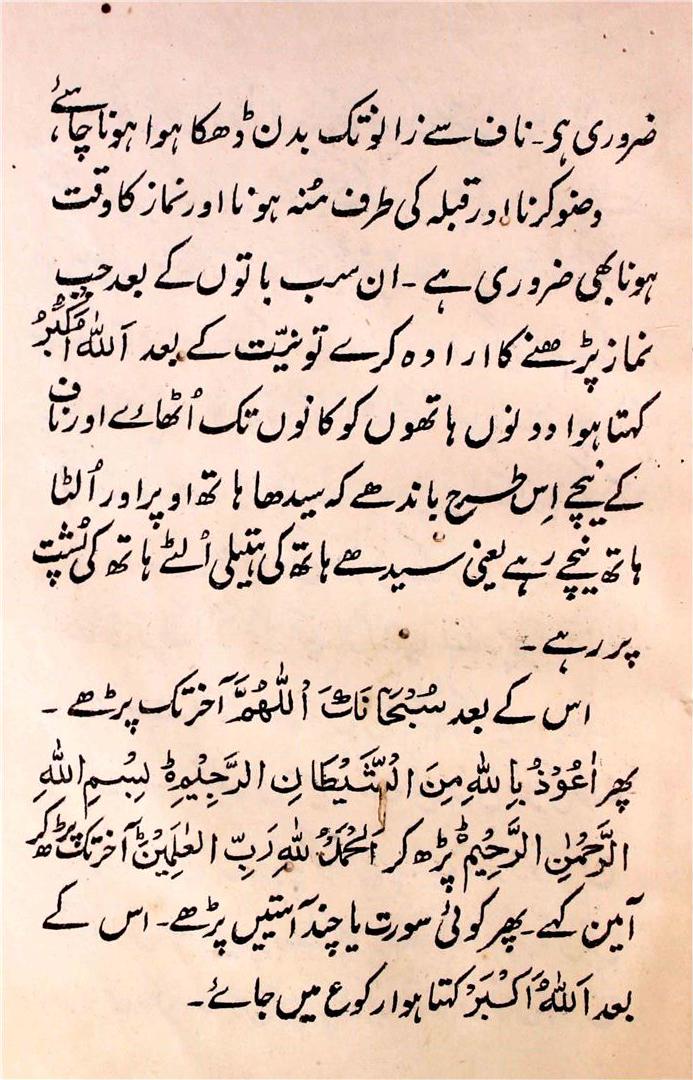 ضروری ہی۔ ناف سے زانو تک بدن ڈھکا ہوا ہونا چاہئے،
وضو کرنا اور قبلہ کی طرف مُنہ ہونا اور نماز کا وقت
ہونا بھی ضروری ہے۔ ان سب باتوں کے بعد جب
نماز پڑھنے کا ارادہ کرے تو نیّت کے بعد اَللّٰہُ اَکْبَرُ
کہتا ہوا دونوں ہاتھوں کو کانوں تک اُٹھائے اور ناف
کے نیچے اِس طرح باندھے کہ سیدھا ہاتھ اوپر اور اُلٹا
ہاتھ نیچے رہے یعنی سیدھے ہاتھ کی ہتیلی اُلٹے ہاتھ کی پُشت
پر رہے۔
اس کے بعد سُبْحَانَكَ اللّٰهُمَّ آخر تک پڑھے۔
پھر اَعُوْذُ بِاللّٰهِ مِنَ الشَّيْطَانِ الرَّجِيْمِ ط بِسْمِ اللّٰهِ
الرَّحْمٰنِ الرَّحِيْمِ ط پڑھ کر اَلْحَمْدُ لِلّٰهِ رَبِّ الْعٰلَمِيْنَ ط آخر تک پڑھ کر
آمین کہے۔ پھر کوئی سورت یا چند آستیں پڑھے۔ اس کے
بعد اَللّٰهُ اَکْبَرْ کہتا ہوا رکوع میں جائے۔